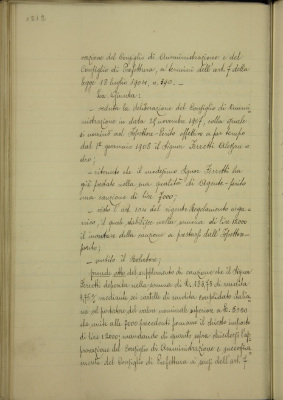 1212
razione del Consiglio di Amministrazione e del
Consiglio di Prefettura, a' termini dell'art. 7 della
legge 19 luglio 1904, n. 390. –
La Giunta;
– veduta la deliberazione del Consiglio di Ammi-
nistrazione in data 21 novembre 1907, colla quale
si nominò ad Ispettore-Perito effettivo a far tempo
dal 1° gennaio 1908 il Signor Ferretti
dro;
– ritenuto che il medesimo Signor Ferretti ha
già prestato nella sua qualità di Agente-perito
una cauzione di lire 7000;
– visto l'art. del vigente Regolamento orga-
nico, il quale stabilisce nella somma di lire 12000
il montare della cauzione a prestarsi dall'Ispettore-
perito;
– sentito il Relatore;
prende atto del supplemento di cauzione che il Signor
Ferretti deposita nella somma di L. di rendita
3,75% mediante sei cartelle di rendita consolidato italia-
no al portatore del valore nominale superiore a L. 5000
che unite alle 7000 precedenti formano il dovuto montare
di lire 12000; mandando di quanto sopra chiedersi l'ap-
provazione del Consiglio di Amministrazione e successiva-
mente del Consiglio di Prefettura ai sensi dell'art. 7